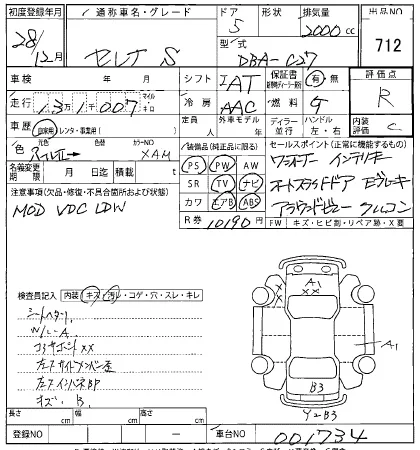 初度登録年月 通称車名・グレード ドア 形状 排気量 出品NO
28年12月 セレナ S 5 2000cc 712
型式 DBA-C27
車検 年 月 シフト IAT 保証書 有 無 評価点
走行 13万1千007 マイル キロ 冷房 AAC 燃料 G R
車歴 自家用・レンタ・事業用( ) 外車モデル 年 ディーラー 並行 ハンドル 左・右 内装 C
色 元色 カラーNO XAM
装備品(純正品に限る) セールスポイント(正常に機能するもの)
名義変更期限 月 日迄 積載 t PS PW AW ワンオーナー インテリキー
注意事項(欠品・修復・不具合箇所および状態) SR TV ナビ オートスライドドア Eブレーキ
MOD VDC LDW カワ エアB ABS アラウンドビュー クルコン
R券 10190円 FW キズ・ヒビ割・リペア跡・X要
検査員記入 内装 キズ・汚レ・コゲ・穴・スレ・キレ
A1
XX
W/L-A
コアサポートXX
A1
左フロントインパネBP
B3
キズ、B.
Y2-B3
長さ cm 幅 cm 高さ cm
登録NO 車台NO 001734